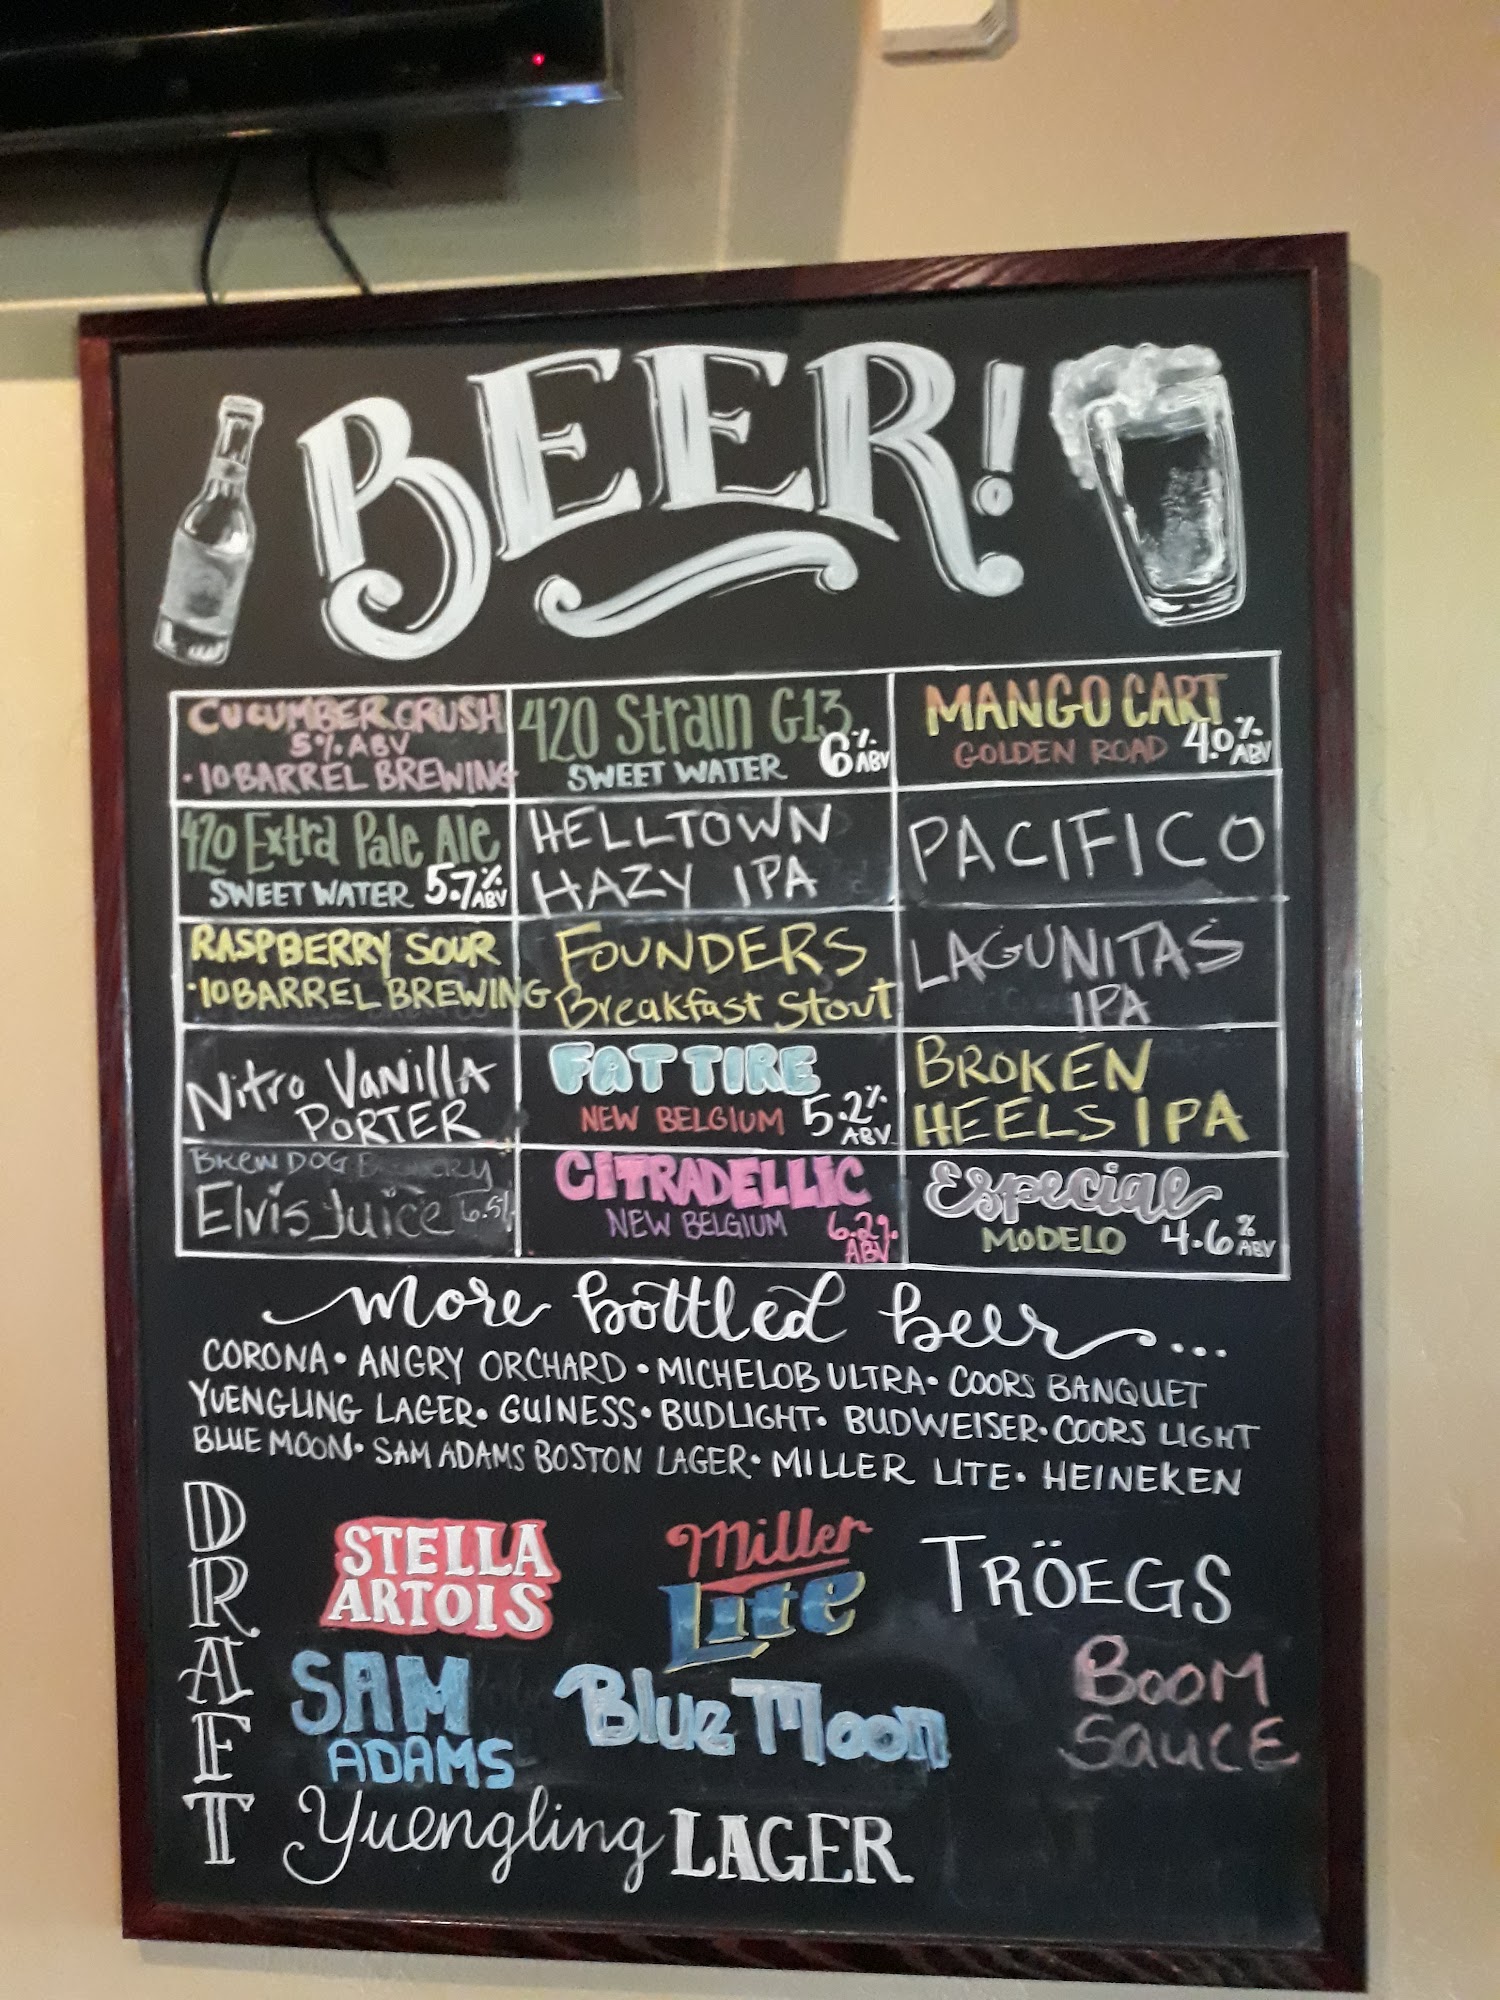 BEER!
CUCUMBER CRUSH
5% ABV
· 10 BARREL BREWING
420 Strain G13
SWEET WATER 6% ABV
MANGO CART
GOLDEN ROAD 4.0% ABV
420 Extra Pale Ale
SWEET WATER 5.7% ABV
HELLTOWN
HAZY IPA
PACIFICO
RASPBERRY SOUR
· 10 BARREL BREWING
FOUNDERS
Breakfast Stout
LAGUNITAS
IPA
Nitro VANILLA
PORTER
FAT TIRE
NEW BELGIUM 5.2% ABV
BROKEN
HEELS IPA
BREW DOG
Elvis Juice 6.5%
CITRADELLIC
NEW BELGIUM 6.2% ABV
Especial
MODELO 4.6% ABV
more bottled beer...
CORONA • ANGRY ORCHARD • MICHELOB ULTRA • COORS BANQUET
YUENGLING LAGER • GUINESS • BUDLIGHT • BUDWEISER • COORS LIGHT
BLUE MOON • SAM ADAMS BOSTON LAGER • MILLER LITE • HEINEKEN
DRAFT
STELLA
ARTOIS
Miller
Lite
TRÖEGS
SAM
ADAMS
Blue Moon
BOOM
SAUCE
Yuengling LAGER